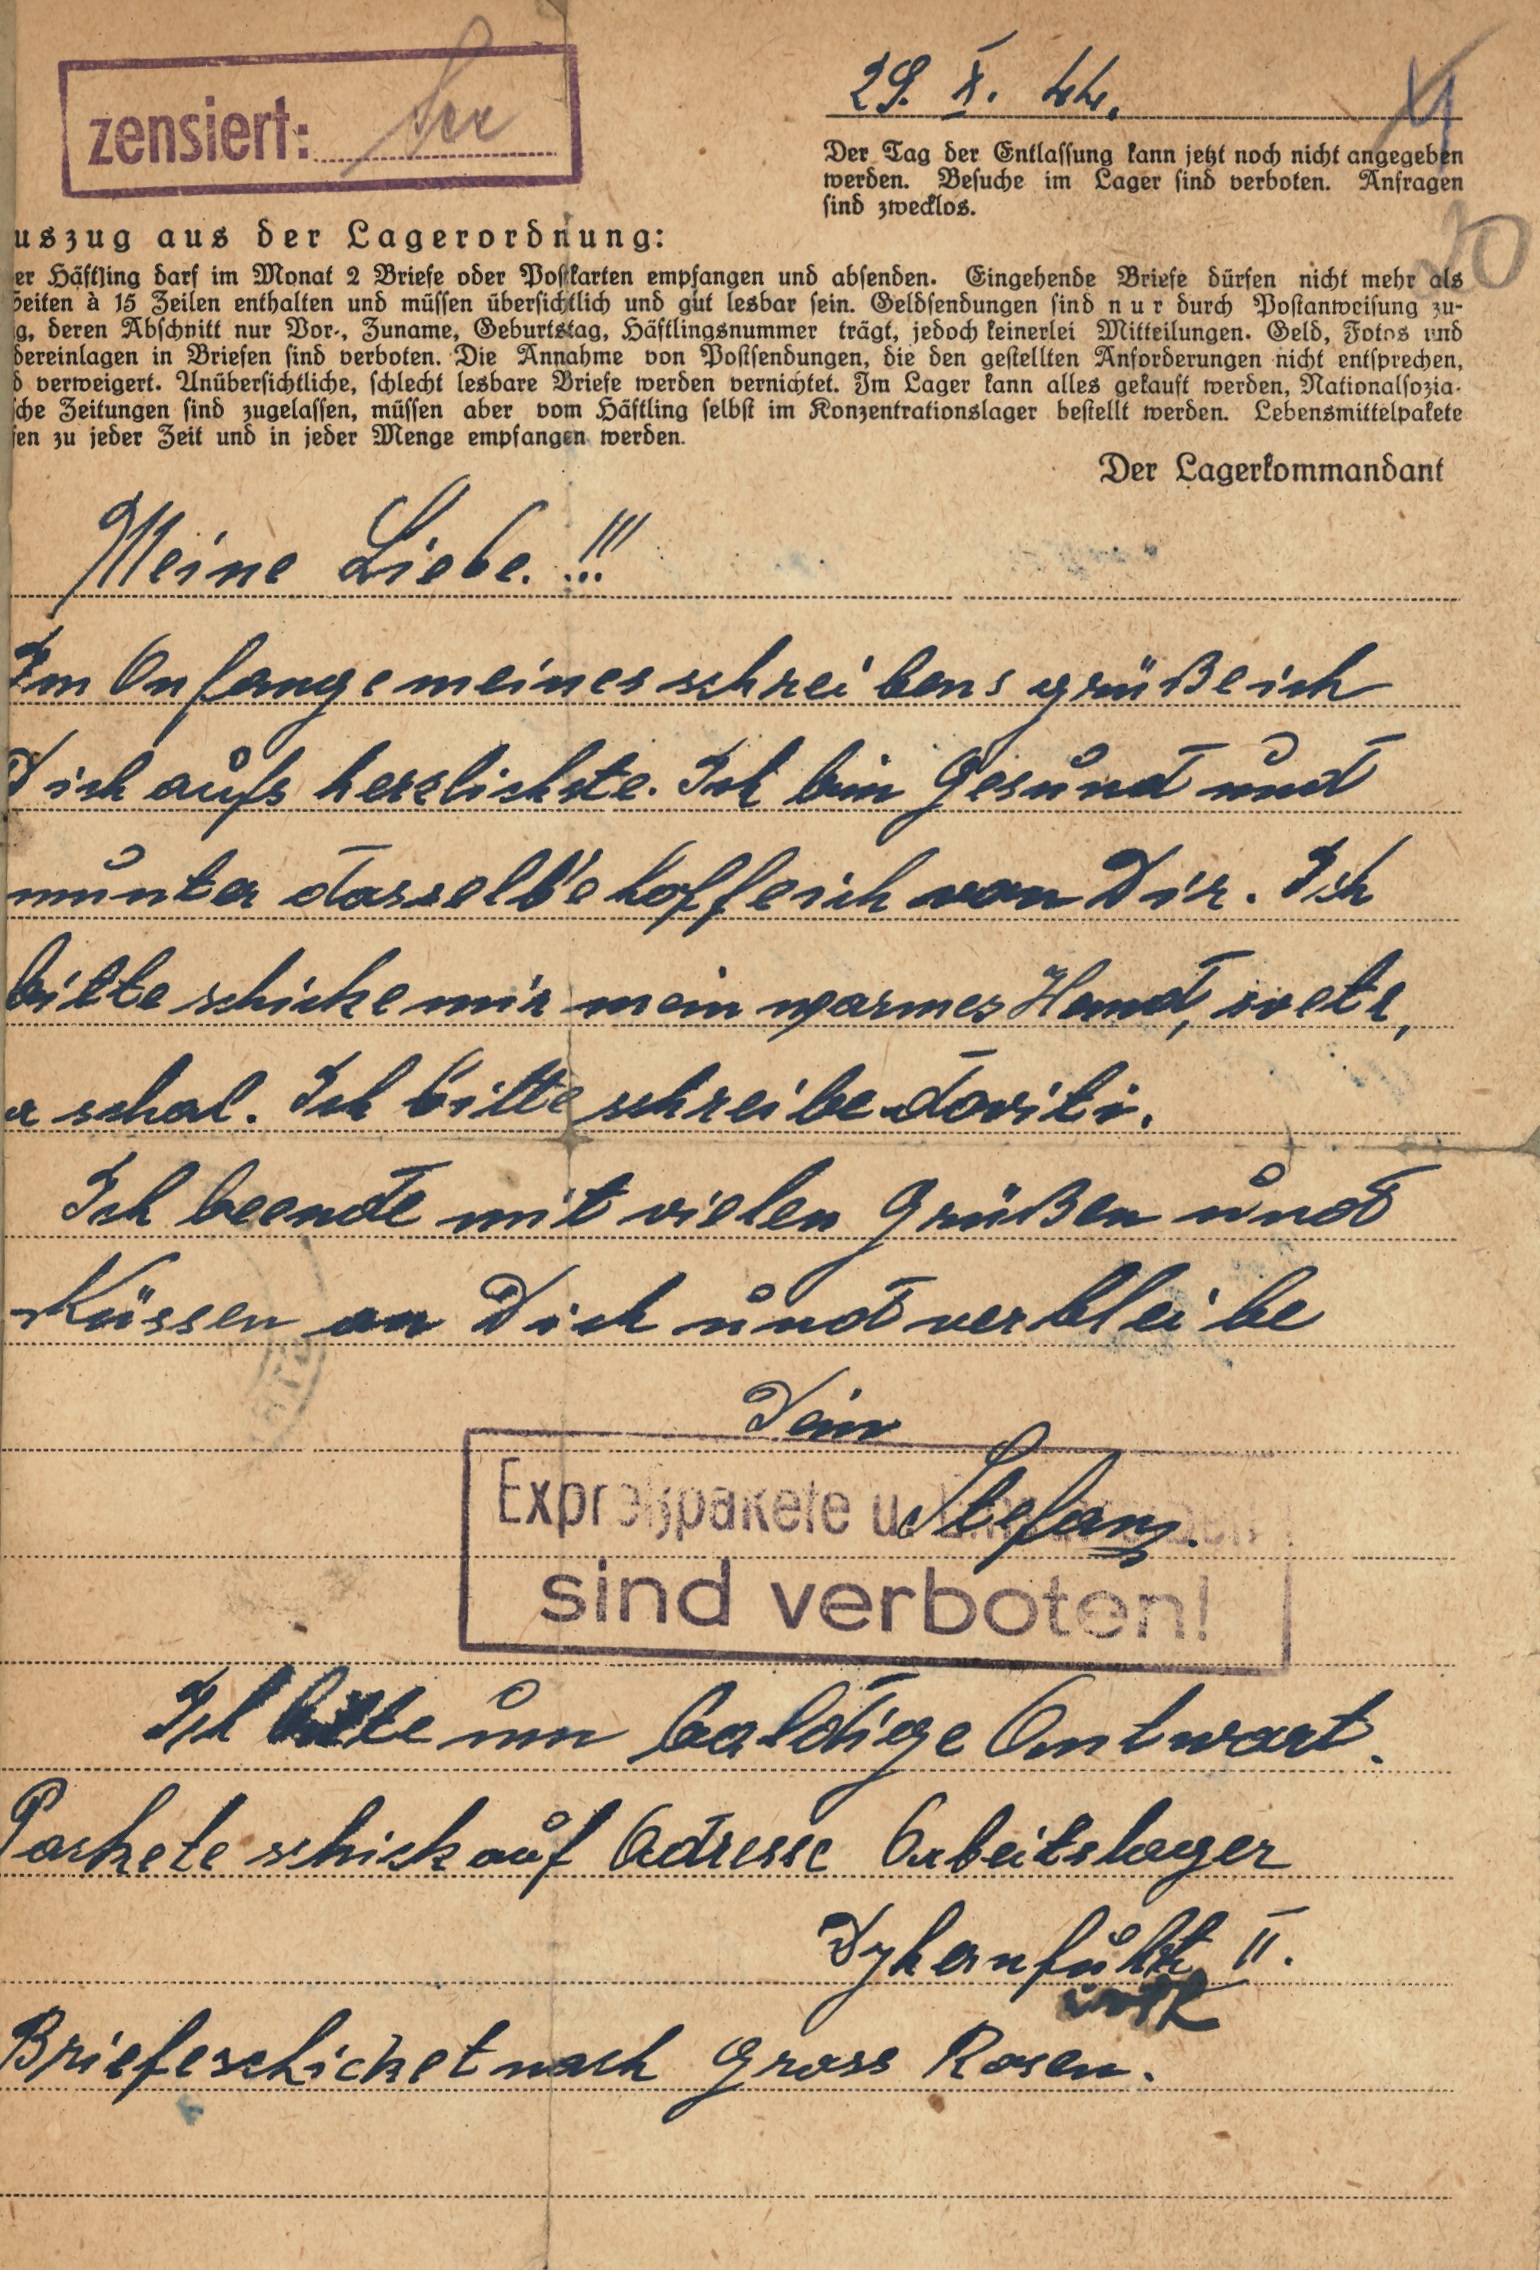 zensiert:
29. X. 44.
Der Tag der Entlassung kann jetzt noch nicht angegeben
werden. Besuche im Lager sind verboten. Anfragen
sind zwecklos.
uszug aus der Lagerordnung:
er Häftling darf im Monat 2 Briefe oder Postkarten empfangen und absenden. Eingehende Briefe dürfen nicht mehr als
Seiten à 15 Zeilen enthalten und müssen übersichtlich und gut lesbar sein. Geldsendungen sind nur durch Postanweisung zu-
g, deren Abschnitt nur Vor-, Zuname, Geburtstag, Häftlingsnummer trägt, jedoch keinerlei Mitteilungen. Geld, Fotos und
dereinlagen in Briefen sind verboten. Die Annahme von Postsendungen, die den gestellten Anforderungen nicht entsprechen,
d verweigert. Unübersichtliche, schlecht lesbare Briefe werden vernichtet. Im Lager kann alles gekauft werden, Nationalsozia-
sche Zeitungen sind zugelassen, müssen aber vom Häftling selbst im Konzentrationslager bestellt werden. Lebensmittelpakete
fen zu jeder Zeit und in jeder Menge empfangen werden.
Der Lagerkommandant
20
Meine Liebe. !!!
Im Anfange meines schreibens grüße ich
Dich aufs herzlichste. Ich bin Gesund und
munter dasselbe hoffe ich von Dir. Ich
bitte schicke mir mein warmes Hemd, svetr,
a schal. Ich bitte schreibe
Ich beende mit vielen Grüßen und
Küssen an Dich und verbleibe
Dein
Stefan.
Expreßpakete u.
sind verboten!
Ich bitte um baldige Antwort.
Packete schick auf Adresse Arbeitslager
Dyhernfuhrt II.
Briefe schicket nach Gross Rosen.